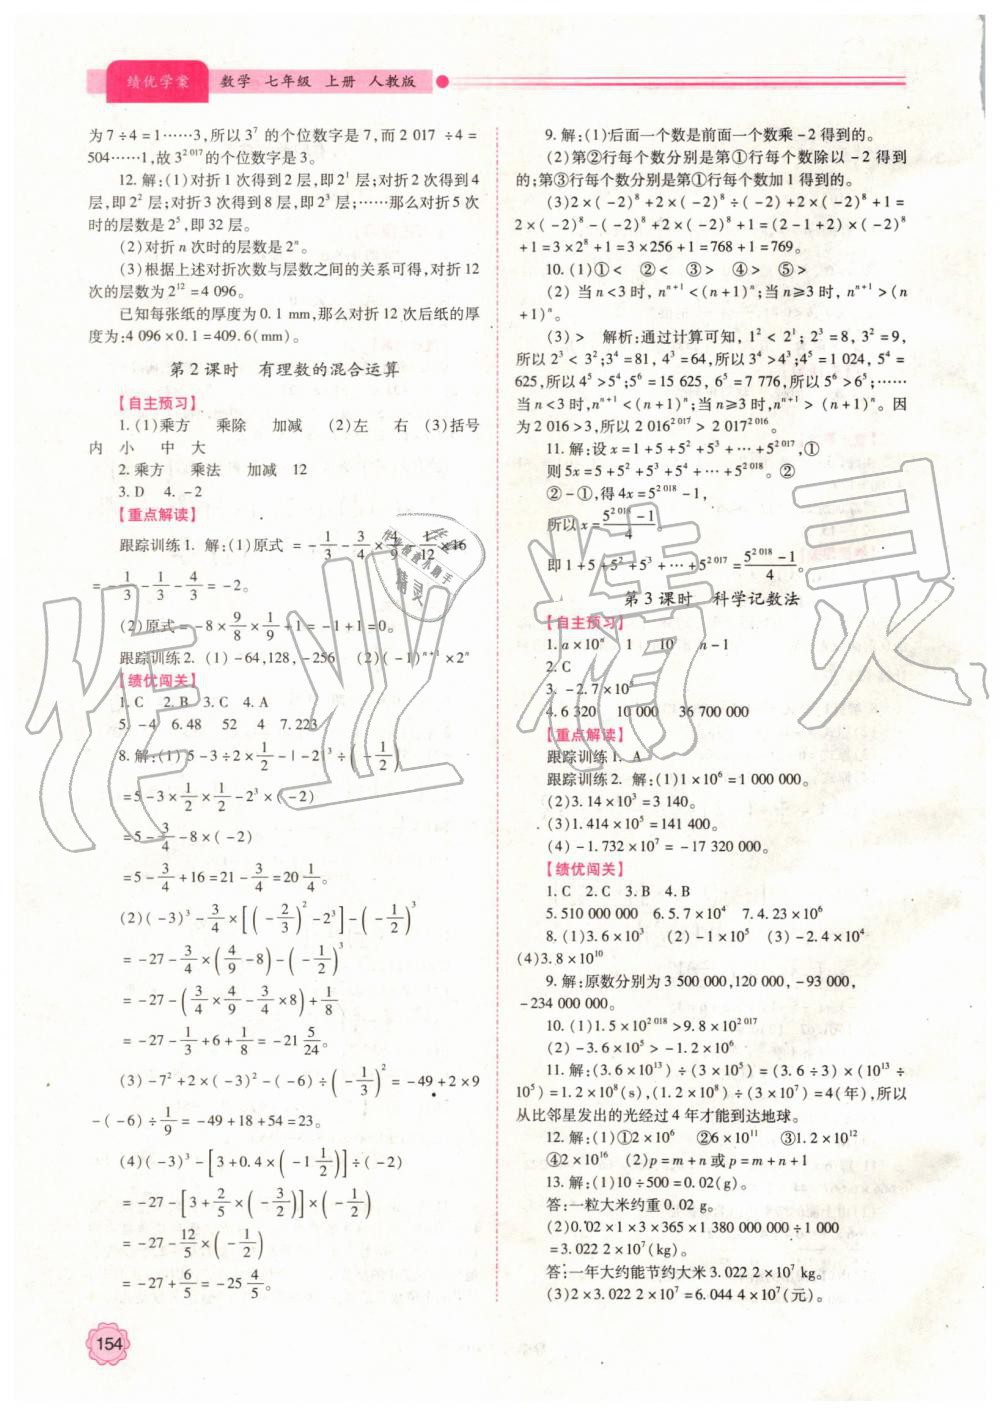 绩优学案 数学 七年级 上册 人教版
为7÷4=1……3,所以3⁷的个位数字是7,而2 017 ÷4=
504……1,故3²⁰¹⁷的个位数字是3。
12.解:(1)对折1次得到2层,即2¹层;对折2次得到4
层,即2²层;对折3次得到8层,即2³层;……那么对折5次
时的层数是2⁵,即32层。
(2)对折n次时的层数是2ⁿ。
(3)根据上述对折次数与层数之间的关系可得,对折12
次的层数为2¹²=4 096。
已知每张纸的厚度为0.1 mm,那么对折12次后纸的厚
度为:4 096×0.1=409.6(mm)。
第2课时 有理数的混合运算
【自主预习】
1.(1)乘方 乘除 加减 (2)左 右 (3)括号
内 小 中 大
2.乘方 乘法 加减 12
3.D 4.-2
【重点解读】
跟踪训练1.解:(1)原式=-1/3-3/4×4/9-1/12×16
=-1/3-1/3-4/3=-2。
(2)原式=-8×9/8×1/9+1=-1+1=0。
跟踪训练2.(1)-64,128,-256 (2)(-1)ⁿ⁺¹×2ⁿ
【绩优闯关】
1.C 2.B 3.C 4.A
5.-4 6.48 52 4 7.223
8.解:(1)5-3÷2×1/2-|-2|³÷(-1/2)
=5-3×1/2×1/2-2³×(-2)
=5-3/4-8×(-2)
=5-3/4+16=21-3/4=20 1/4。
(2)(-3)³-3/4×[(-2/3)²-2³]-(-1/2)³
=-27-3/4×(4/9-8)-(-1/2)³
=-27-(3/4×4/9-3/4×8)+1/8
=-27-1/3+6+1/8=-21 5/24。
(3)-7²+2×(-3)²-(-6)÷(-1/3)²=-49+2×9
-(-6)÷1/9=-49+18+54=23。
(4)(-3)³-[3+0.4×(-1 1/2)]÷(-2)
=-27-[3+2/5×(-3/2)]×(-1/2)
=-27-12/5×(-1/2)
=-27+6/5=-25 4/5。
154
9.解:(1)后面一个数是前面一个数乘-2得到的。
(2)第②行每个数分别是第①行每个数除以-2得到
的;第③行每个数分别是第①行每个数加1得到的。
(3)2×(-2)⁸+2×(-2)⁸÷(-2)+2×(-2)⁸+1=
2×(-2)⁸-(-2)⁸+2×(-2)⁸+1=(2-1+2)×(-2)⁸
+1=3×2⁸+1=3×256+1=768+1=769。
10.(1)①< ②< ③> ④> ⑤>
(2)当n<3时,nⁿ⁺¹<(n+1)ⁿ;当n≥3时,nⁿ⁺¹>(n
+1)ⁿ。
(3)> 解析:通过计算可知,1²<2¹;2³=8,3²=9,
所以2³<3²;3⁴=81,4³=64,所以3⁴>4³;4⁵=1 024,5⁴=
625,所以4⁵>5⁴;5⁶=15 625,6⁵=7 776,所以5⁶>6⁵;……
当n<3时,nⁿ⁺¹<(n+1)ⁿ;当n≥3时,nⁿ⁺¹>(n+1)ⁿ。因
为2 016>3,所以2 016²⁰¹⁷>2 017²⁰¹⁶。
11.解:设x=1+5+5²+5³+…+5²⁰¹⁷,①
则5x=5+5²+5³+5⁴+…+5²⁰¹⁸。②
②-①,得4x=5²⁰¹⁸-1,
所以x=(5²⁰¹⁸-1)/4。
即1+5+5²+5³+…+5²⁰¹⁷=(5²⁰¹⁸-1)/4。
第3课时 科学记数法
【自主预习】
1.a×10ⁿ 1 10 n-1
2.C
3.-2.7×10⁵
4.6 320 10 000 36 700 000
【重点解读】
跟踪训练1.A
跟踪训练2.解:(1)1×10⁶=1 000 000。
(2)3.14×10³=3 140。
(3)1.414×10⁵=141 400。
(4)-1.732×10⁷=-17 320 000。
【绩优闯关】
1.C 2.C 3.B 4.B
5.510 000 000 6.5.7×10⁴ 7.4.23×10⁶
8.(1)3.6×10³ (2)-1×10⁵ (3)-2.4×10⁴
(4)3.8×10¹⁰
9.解:原数分别为3 500 000,120 000,-93 000,
-234 000 000。
10.(1)1.5×10²⁰¹⁸>9.8×10²⁰¹⁷
(2)-3.6×10⁵>-1.2×10⁶
11.解:(3.6×10¹³)÷(3×10⁵)=(3.6÷3)×(10¹³÷
10⁵)=1.2×10⁸(s),(1.2×10⁸)÷(3×10⁷)=4(年),所以
从比邻星发出的光经过4年才能到达地球。
12.解:(1)①2×10⁶ ②6×10¹¹ ③1.2×10¹²
④2×10¹⁶ (2)p=m+n或p=m+n+1
13.解:(1)10÷500=0.02(g)。
答:一粒大米约重0.02 g。
(2)0.02×1×3×365×1 380 000 000÷1 000
=3.022 2×10⁷(kg)。
答:一年大约能节约大米3.022 2×10⁷ kg。
(3)2×3.022 2×10⁷=6.044 4×10⁷(元)。
作业精灵